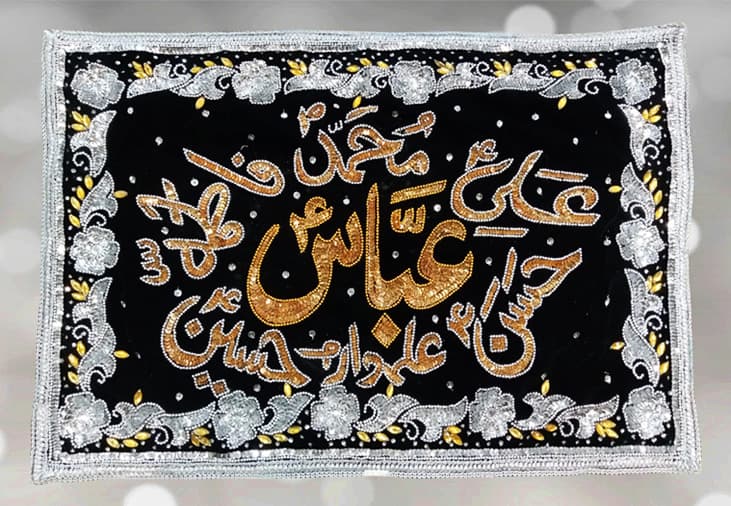 محمدؐ
علیؑ
فاطمہؑ
عباسؑ
حسنؑ
حسینؑ
علمدار